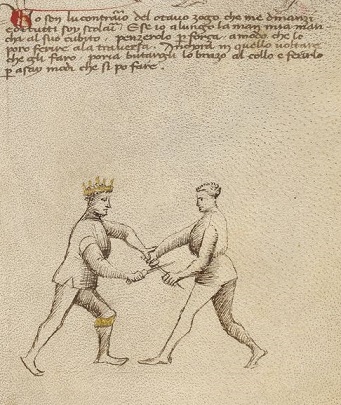 Io son lo contrario del otavo zogo che me dinanzi
cot tutti soy scolar. E se io alungo la man mia man
cha al suo cubito. penzerolo per força a modo che lo
poro ferire ala traversa. Anchora in quello voltare
che gli faro. poria butargli lo brazo al collo e ferirlo
p asay modi che si po fare.